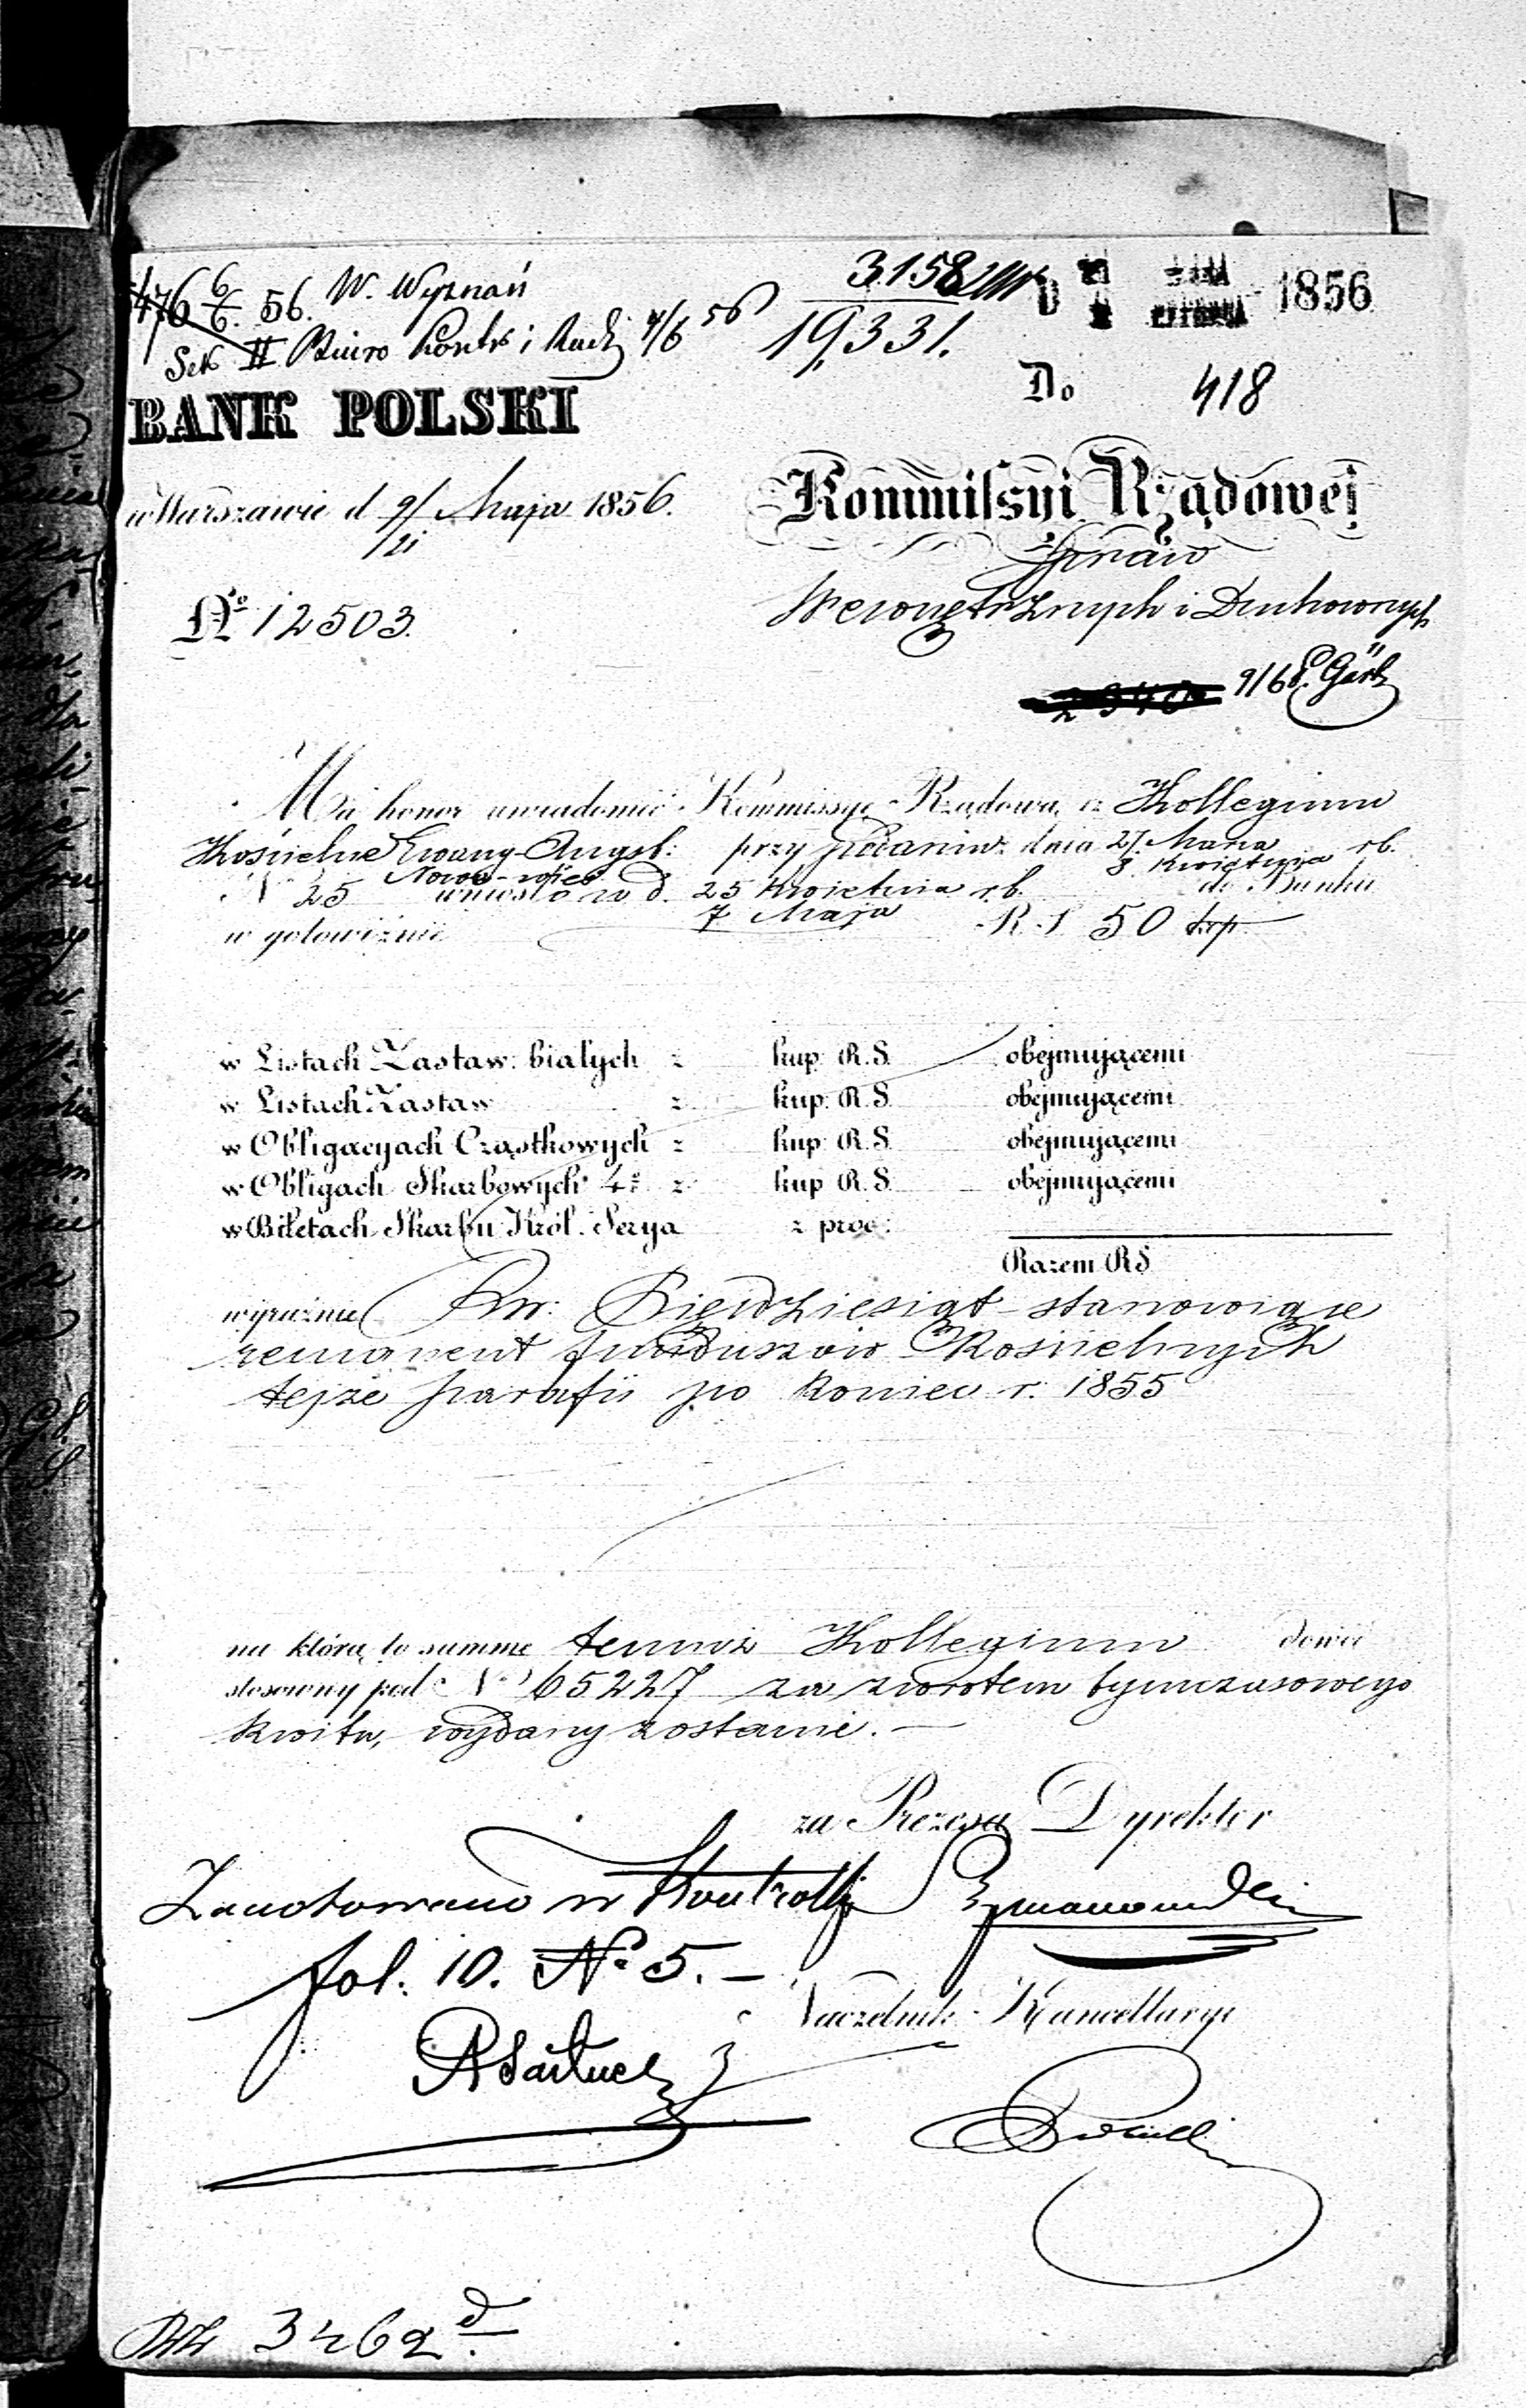 476 6/6. 56. W. Wyznań
Sek II Biuro Kontr i Rach 4/6 56
31582
19,331.
1856
BANK POLSKI
Do 418
w Warszawie d 9/21 Maja 1856.
Kommissyi Rządowej
Spraw
Wewnętrznych i Duchownych
No 12503.
9/6
Ma honor uwiadomić Kommissyę Rządową iż Kollegium
Kościelne Ewang-Augsb: przy podaniu z dnia 27 Marca / 8 Kwietnia rb.
Nowo-wieś
No 25 wniosło w d. 25 Kwietnia / 7 Maja r.b. do Banku
w gotowiźnie R.S. 50 kop
w Listach Zastaw. białych z kup. R.S. obejmującemi
w Listach Zastaw z kup. R.S. obejmującemi
w Obligacyach Cząstkowych z kup. R.S. obejmującemi
w Obligach Skarbowych 4% z kup R.S. obejmującemi
w Biletach Skarbu Król. Serya z proc.
Razem RS
wyraźnie Rsr: Pięćdziesiąt stanowiące
remanent funduszów Kościelnych
tejże parafii po koniec r. 1855
na którą to summę temuż Kollegium dowód
stosowny pod No 65227 za zwrotem tymczasowego
kwitu, wydany zostanie. —
za Prezesa Dyrektor
Zanotowano w Kontrolli
fol. 10. No 5. —
Naczelnik Kancellaryi
3462